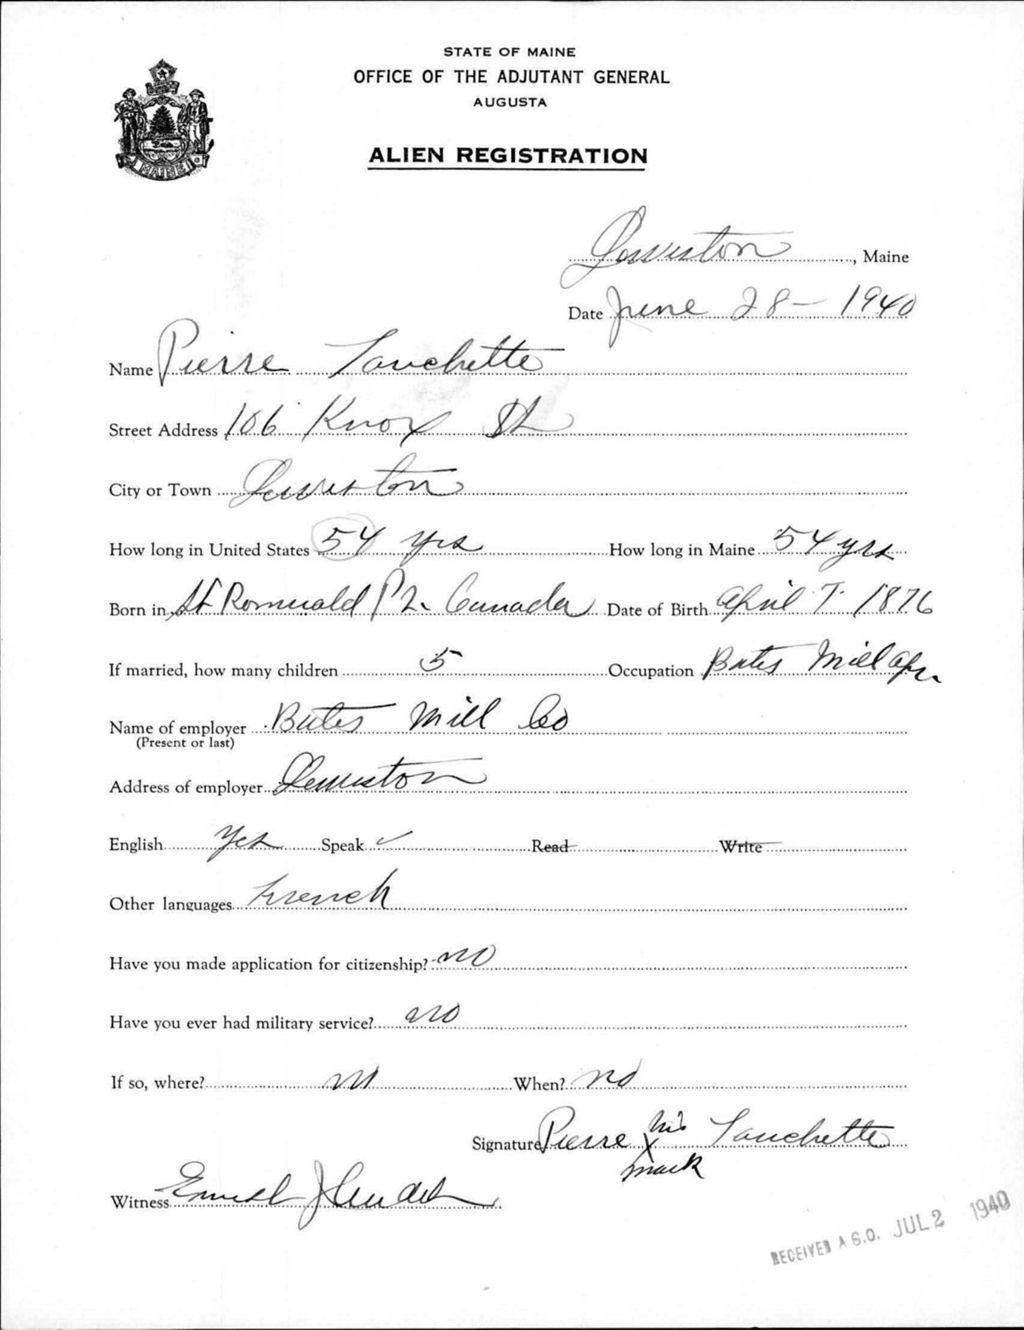 STATE OF MAINE
OFFICE OF THE ADJUTANT GENERAL
AUGUSTA
MAINE
ALIEN REGISTRATION
Lewiston, Maine
Date June 28 - 1940
Name Pierre Touchette
Street Address 106 Knox St
City or Town Lewiston
How long in United States 54 yrs How long in Maine 54 yrs
Born in St Romuald P2. Canada Date of Birth April 7. 1876
If married, how many children 5 Occupation Bates Mill Opr.
Name of employer Bates Mill Co
(Present or last)
Address of employer Lewiston
English Yes Speak ✓ Read Write
Other languages French
Have you made application for citizenship? no
Have you ever had military service? no
If so, where? no When? no
Signature Pierre his X mark Touchette
Witness
RECEIVED A.G.O. JUL 2 1940